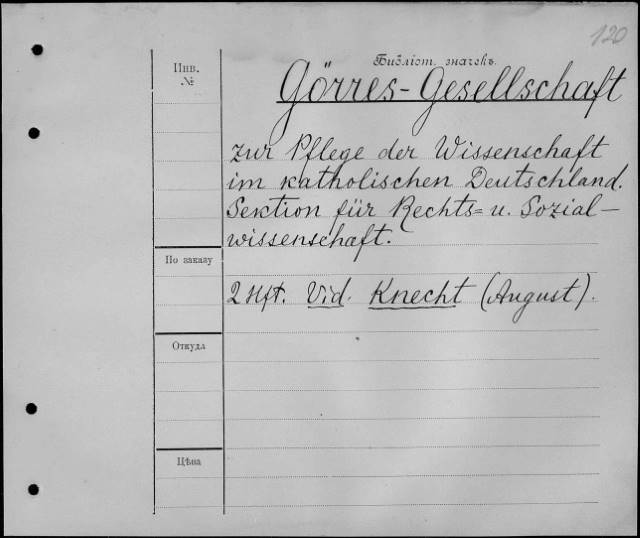 120
Библіот. значекъ.
Инв.
№
Görres-Gesellschaft
zur Pflege der Wissenschaft
im katholischen Deutschland.
Sektion für Rechts= u. Sozial-
wissenschaft.
По заказу
2 Hft. Vid. Knecht (August).
Откуда
Цѣна